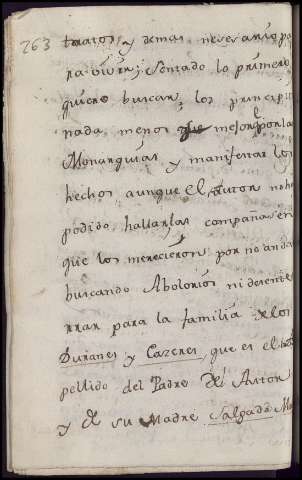 263
tratos, y demas nesesario pa
ra vivir; sentado lo primero
quiero buscar los principi
nada menos que mejor por las
Monarquias, y manifestar los
hechos aunque el Autor no ha
podido hallar las campañas en
que los merecieron por no andar
buscando Abolorios ni desente
rrar para la familia de los
Duranes y Cazeres, que es el
pellido del Padre del Autor
y de su Madre Salgada